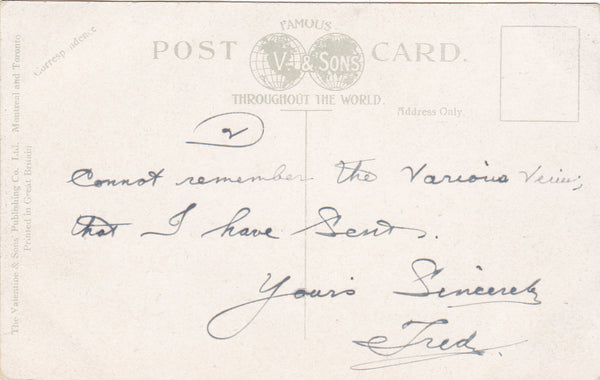 FAMOUS
POST CARD.
V. & SONS
THROUGHOUT THE WORLD.
Correspondence
Address Only.
The Valentine & Sons' Publishing Co., Ltd., Montreal and Toronto
Printed in Great Britain
2
Connot remember the Various Views,
that I have Sent.
Yours Sincerely
Fred.